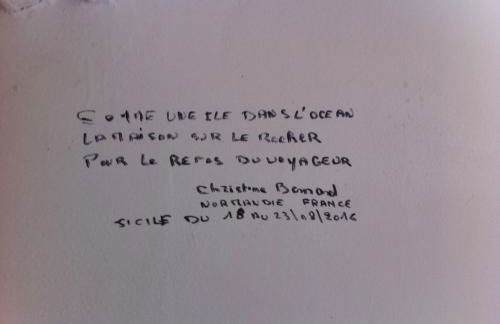 COMME UNE ILE DANS L'OCEAN
LA MAISON SUR LE ROCHER
POUR LE REPOS DU VOYAGEUR
NORMANDIE FRANCE
SICILE DU 18 AU 23/08/2016